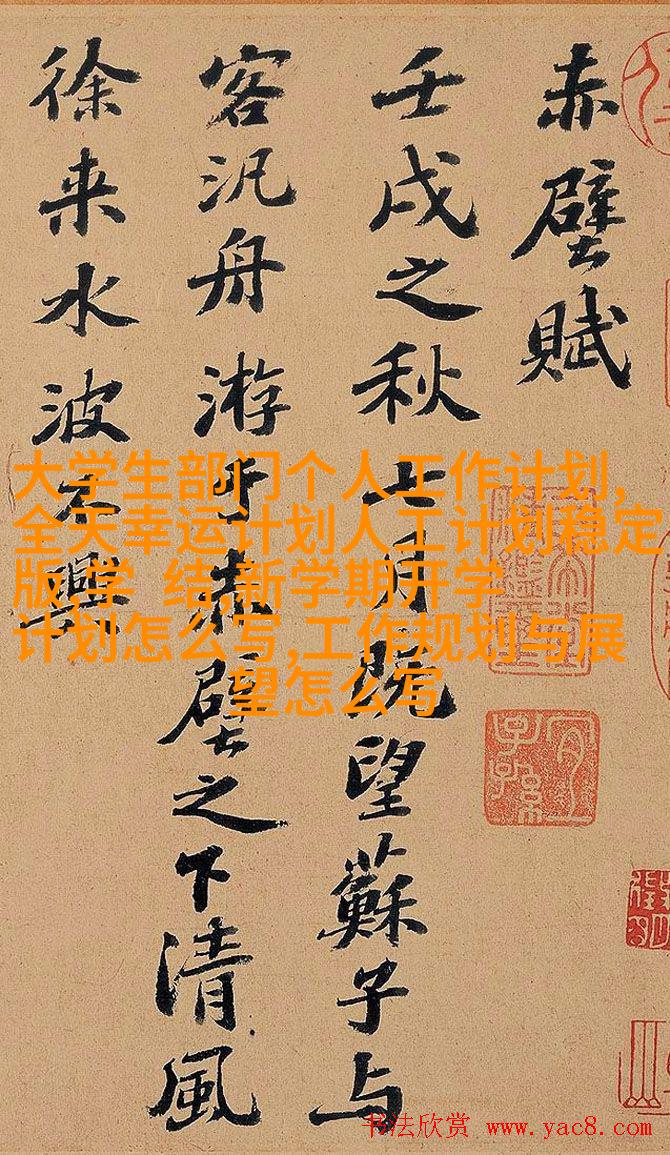 赤壁賦
壬戌之秋七月既望蘇子与
客汎舟游于赤壁之下清風
徐来水波不興
大学生部门个人工作计划,
全天幸运计划人工计划稳定
版,学 结,新学期开学
计划怎么写,工作规划与展
望怎么写
书法欣赏 www.yac8.com